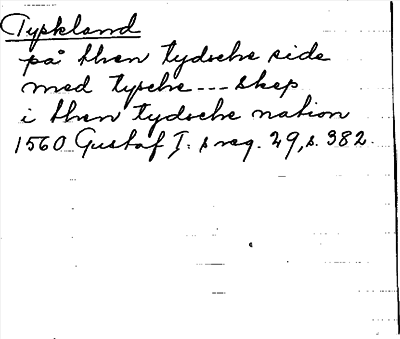 Tyskland
på then tydsche side
med tysche --- skep
i then tydsche nation
1560 Gustaf I:s reg. 29, s. 382.